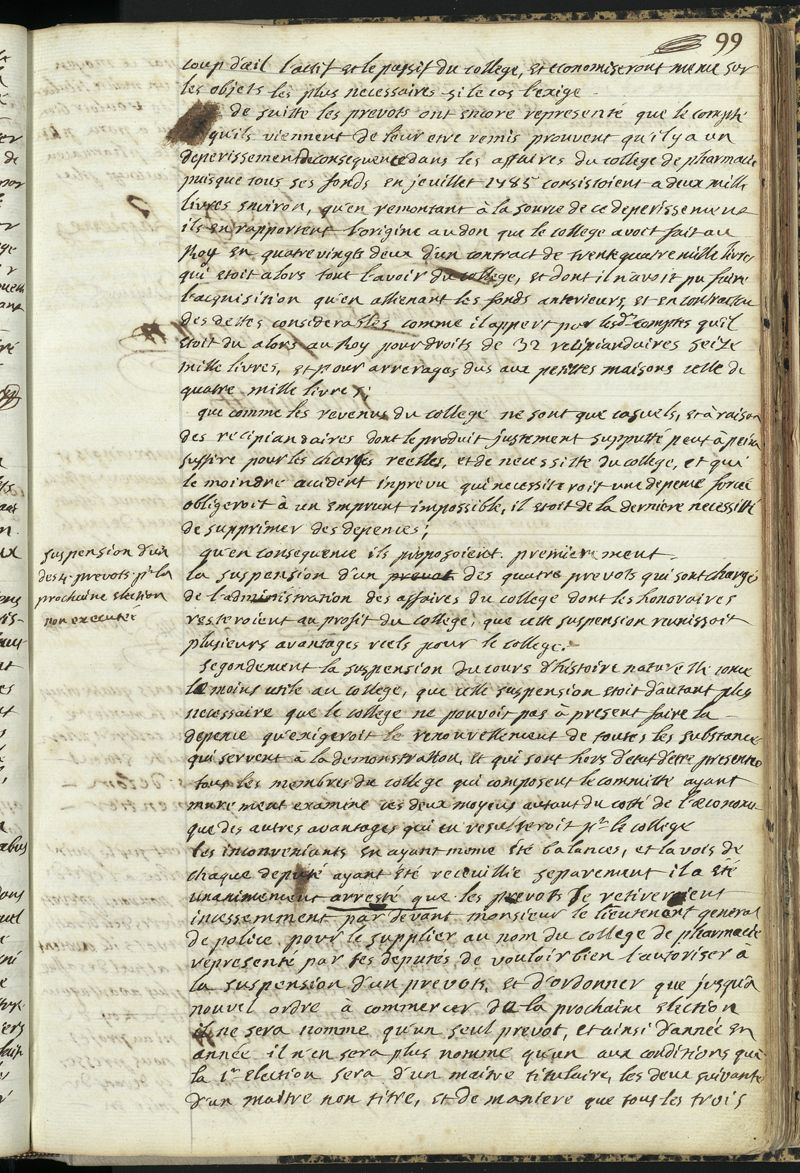 99
coup d'œil l'actif et le passif du college, et economiseront meme sur
les objets les plus necessaires si le cas l'exige.
de suitte les prevots ont encore representé que le compte
qu'ils viennent de leur etre remis prouvent qu'il y a un
deperissement de consequence dans les affaires du college de pharmacie
puisque tous ses fonds en jeuillet 1785 consistoient a deux mille
livres environ, qu'en remontant à la source de ce deperissement
ils en rapportent l'origine au don que le college avoit fait au
Roy en quatre vingts deux d'un contract de trente quatre mille livres
qui etoit alors tout l'avoir du college, et dont il n'avoit pu faire
l'acquisition qu'en allienant les fonds anterieurs, et en contractan
des dettes considerables comme il appert par lesds comptes qu'il
etoit du alors au Roy pour droits de 32 recipiandaires seize
mille livres, et pour arrerages dus aux petittes maisons celle de
quatre mille livres;
que comme les revenus du college ne sont que casuels, et à raison
des recipiandaires dont le produit justement supputté peut à peine
suffire pour les charges reelles, et de necessitte du college, et que
le moindre accident inprevu qui necessitteroit une depense forcée
obligeroit à un emprunt impossible, il etoit de la derniere necessitté
de supprimer des depences;
suspension d'un
des 4 prevots pr la
prochaine election
non executée
qu'en consequence ils proposoient. premierement.
la suspension d'un prevot des quatre prevots qui sont chargé
de l'administration des affaires du college dont les honoraires
resteroient au profit du college, que cette suspension reunissoit
plusieurs avantages reels pour le college.
Segondement la suspension du cours d'histoire naturelle comme
le moins utile au college, que cette suspension etoit d'autant plus
necessaire que le college ne pouvoit pas à present faire la
depence qu'exigeroit le renouvellement de toutes les substances
qui servent à la demonstration, et qui sont hors d'etat d'etre presentés
tous les membres du college qui composent le committé ayant
murement examiné ces deux moyens autant du cotté de l'œconomie
que des autres avantages qui en resulteroit pr le college
les inconveniants en ayant meme eté balancés, et la voix de
chaque deputé ayant eté receuillie separement il a eté
unanimement arresté que les prevots se retireroient
incessemment par devant monsieur le lieutenant general
de police pour le supplier au nom du college de pharmacie
representé par ses deputés de vouloir bien l'autoriser à
la suspension d'un prevots, et d'ordonner que jusqu'à
nouvel ordre à commencer de la prochaine election
il ne sera nommé qu'un seul prevot, et ainsi d'année en
année il n'en sera plus nommé qu'un aux conditions que
la 1re election sera d'un maitre titulaire, les deux suivantes
d'un maitre non titré, et de maniere que tous les trois